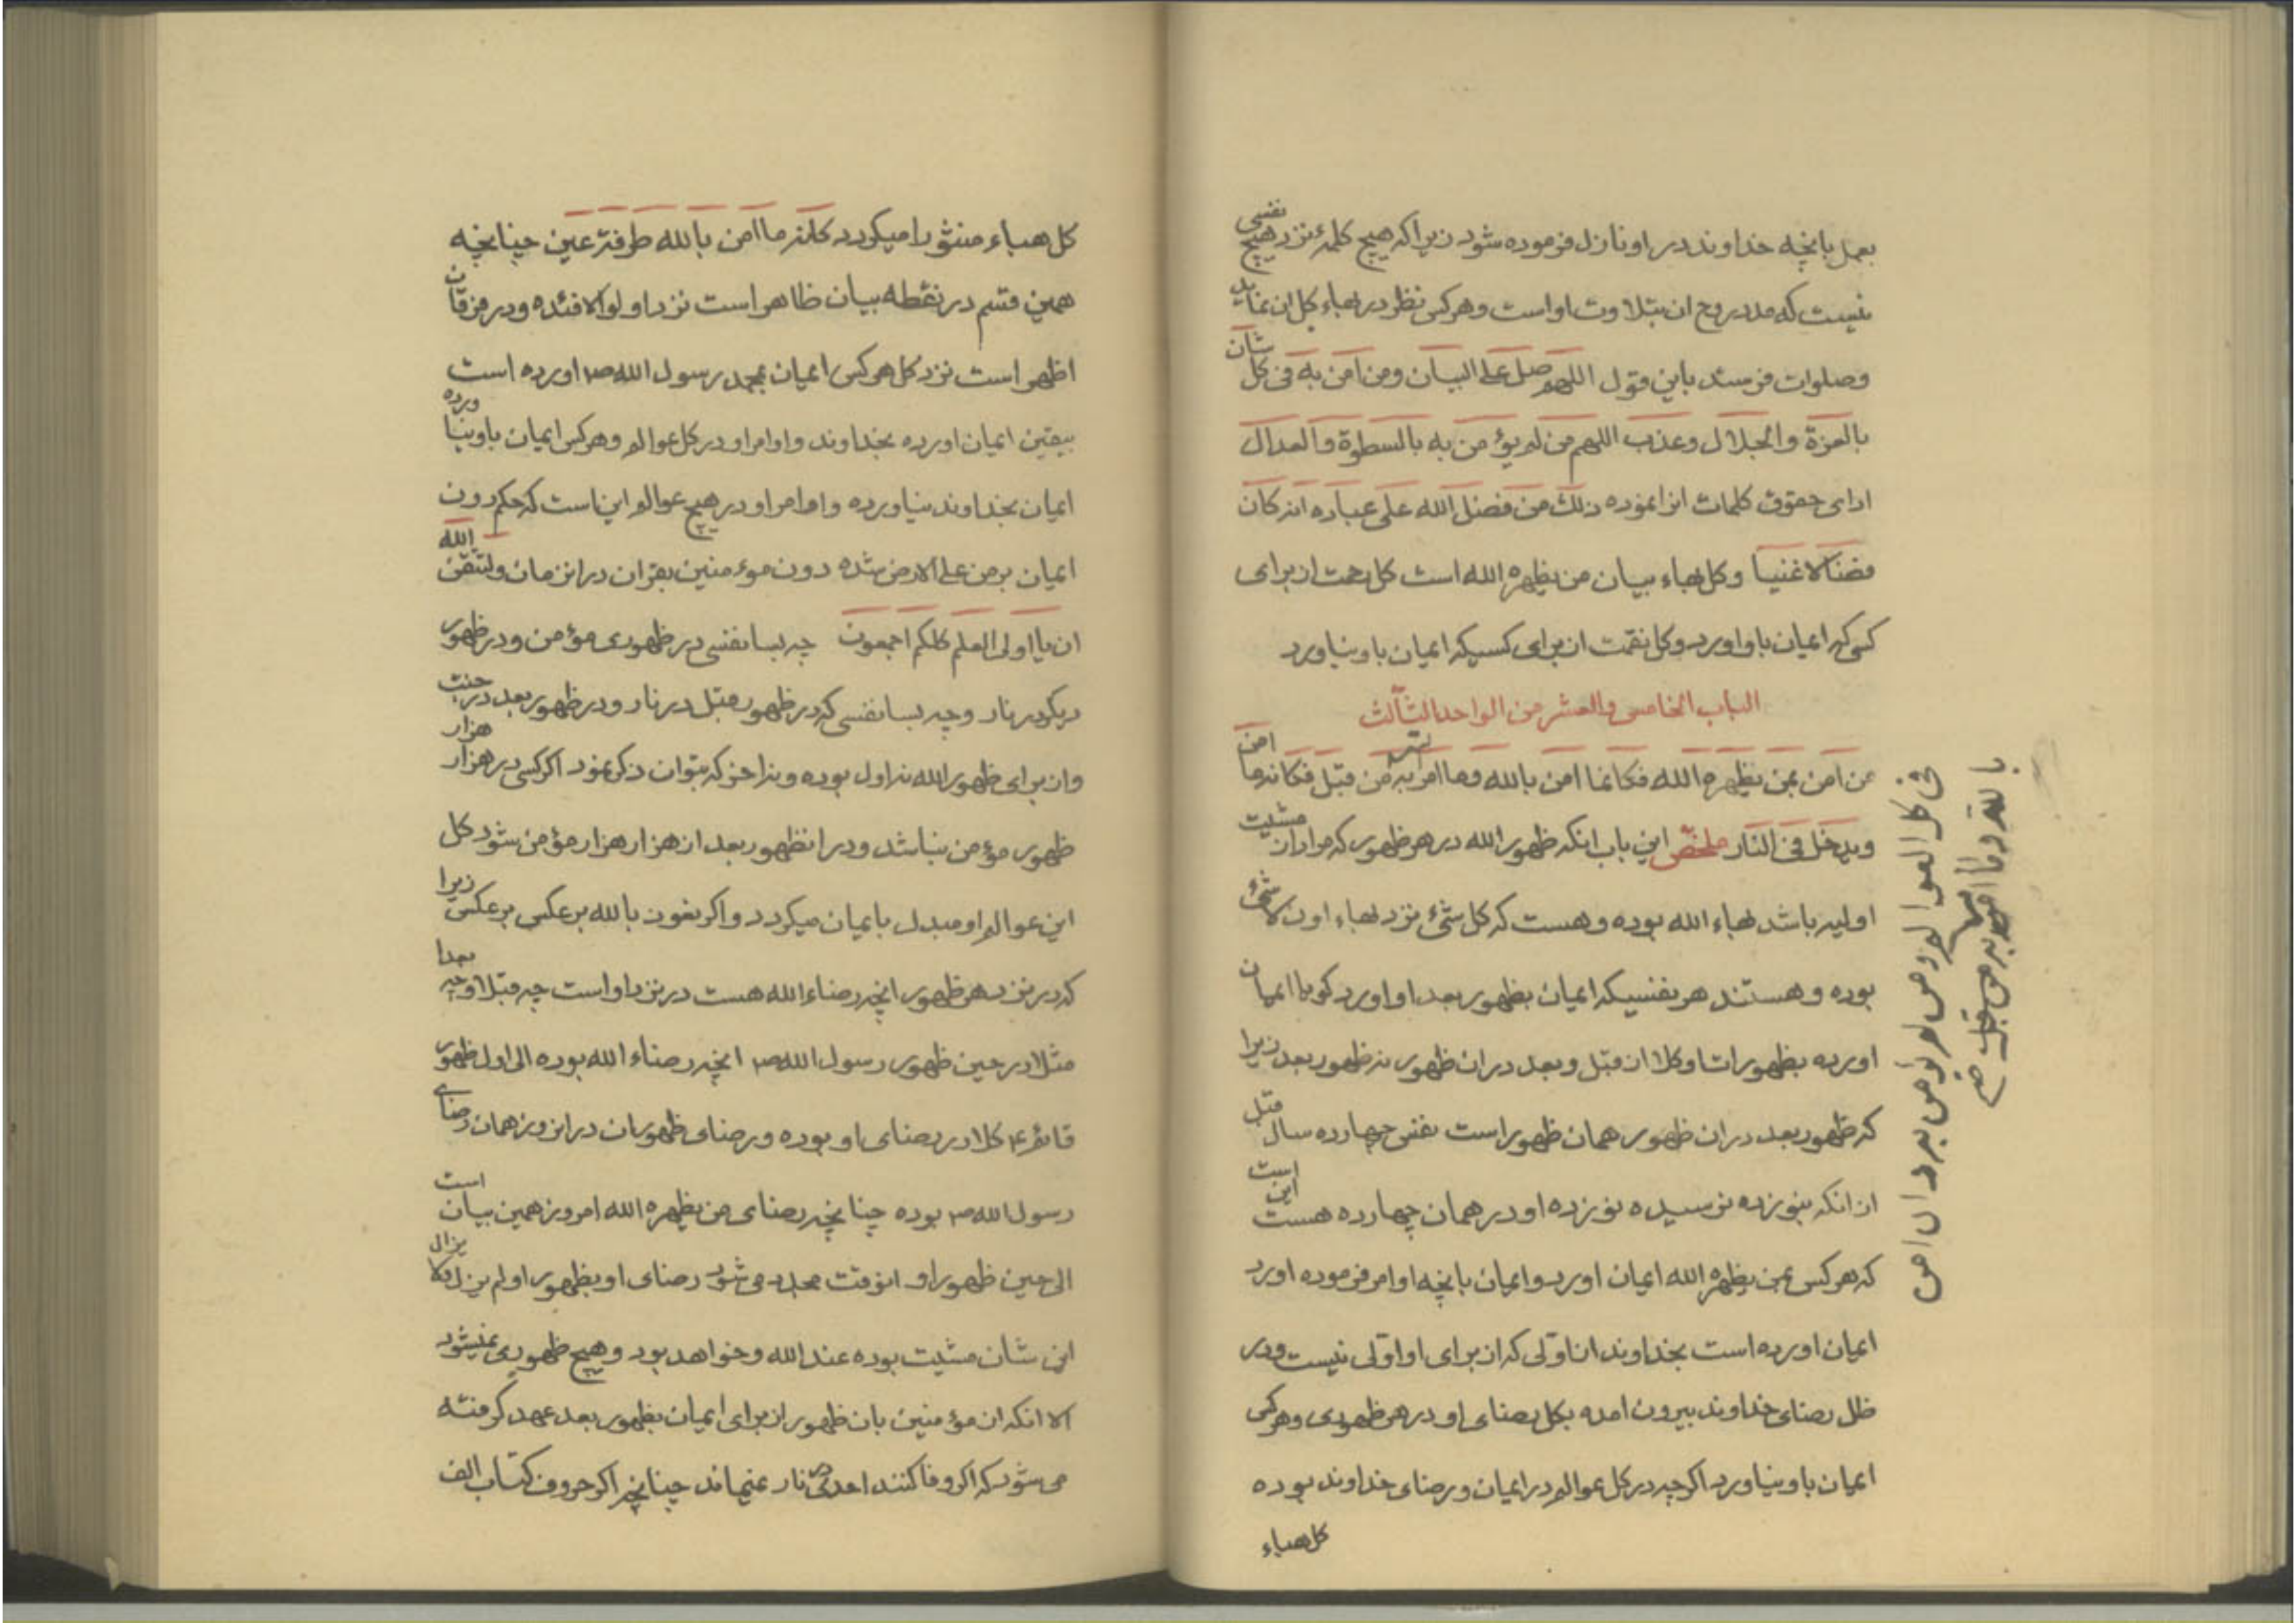 بعمل بانچه خداوند در او نازل فرموده شود زیرا که هیچ کلمهٔ نزد هیچ نفسی
نیست که مدد روح ان بتلاوت او است و هر کس نظر در بهاء کل ان نماید
و صلوات فرستد باین قول اللهم صل علی البیان و من امن به فی کل شان
بالعزة والجلال و عذب اللهم من لم یؤمن به بالسطوة والعدال
ادای حقوق کلمات انرا نموده ذلك من فضل الله علی عباده انه کان
فضالا غنیا و کل بهاء بیان من یظهره الله است کل رحمت از برای
کسی که ایمان باو اورد و کل نقمت از برای کسیکه ایمان باو نیاورد
الباب الخامس والعشر من الواحد الثالث
من امن بمن یظهره الله فکانما امن بالله وما امر به من قبل فکانه ما امن
ویدخل فی النار ملخص این باب انکه ظهور الله در هر ظهور که مراد از مشیت
اولیه باشد بهاء الله بوده و هست که کل شئ نزد بهاء او لا شئ
بوده و هستند هر نفسیکه ایمان بظهور بعد او اورد کویا ایمان
اورده بظهورات او کلا از قبل و بعد در ان ظهور نه ظهور بعد زیرا
که ظهور بعد در ان ظهور همان ظهور است نفس چهارده سال قبل
از انکه بنوزده نرسیده نوزده او در همان چهارده هست این است
که هر کس بمن یظهره الله ایمان اورد و ایمان بانچه اوامر فرموده اورد
ایمان اورده است بخداوند از اولی که از برای او اولی نیست و در
ظل رضای خداوند بیرون امده بکل رضای او در هر ظهوری و هر کس
ایمان باو نیاورد اکر چه در کل عوالم در ایمان و رضای خداوند بوده
کل هباء
فی کل العوالم و من لم یؤمن به و ان امن
بالله و ما امر به من قبل
کل هباء منثورا میکردد کانه ما امن بالله طرفة عین چنانچه
همین قسم در نقطه بیان ظاهر است نزد اولو الافئده و در فرقان
اظهر است نزد کل هر کس ایمان بمحمد رسول الله ص اورده است
بیقین ایمان اورده بخداوند و اوامر او در کل عوالم و هر کس ایمان باو نیاورده
ایمان بخداوند نیاورده و اوامر او در هیچ عوالم این است که حکم دون
ایمان بر من علی الارض شده دون مؤمنین بقران در انزمان ولتتقن الله
ان یا اولی العلم کلکم اجمعون چه بسا نفسی در ظهوری مؤمن و در ظهور
دیکر در نار و چه بسا نفسی که در ظهور قبل در نار و در ظهور بعد در جنت
و از برای ظهور الله نه اول بوده و نه اخر که بتوان ذکر نمود اکر کسی در هزار هزار
ظهور مؤمن نباشد و در انظهور بعد از هزار هزار مؤمن شود کل
این عوالم او مبدل بایمان میکردد و اکر نعوذ بالله بر عکس بر عکس زیرا
که در نزد هر ظهور انچه رضاء الله هست در نزد او است چه قبلا و چه بعدا
مثلا در حین ظهور رسول الله ص انچه رضاء الله بوده الی اول ظهور
قائم ع کلا در رضای او بوده و رضای ظهور ان در انروز همان رضای
رسول الله ص بوده چنانچه رضای من یظهره الله امروز همین بیان است
الی حین ظهور او انوقت مجدد می شود رضای او بظهور او لم یزل ولا یزال
این شان مشیت بوده عند الله و خواهد بود و هیچ ظهوری نمیشود
الا انکه از مؤمنین بان ظهور از برای ایمان بظهور بعد عهد کرفته
می شود که اکر وفا کنند احدی در نار نمیماند چنانچه اکر حروف کتاب الف